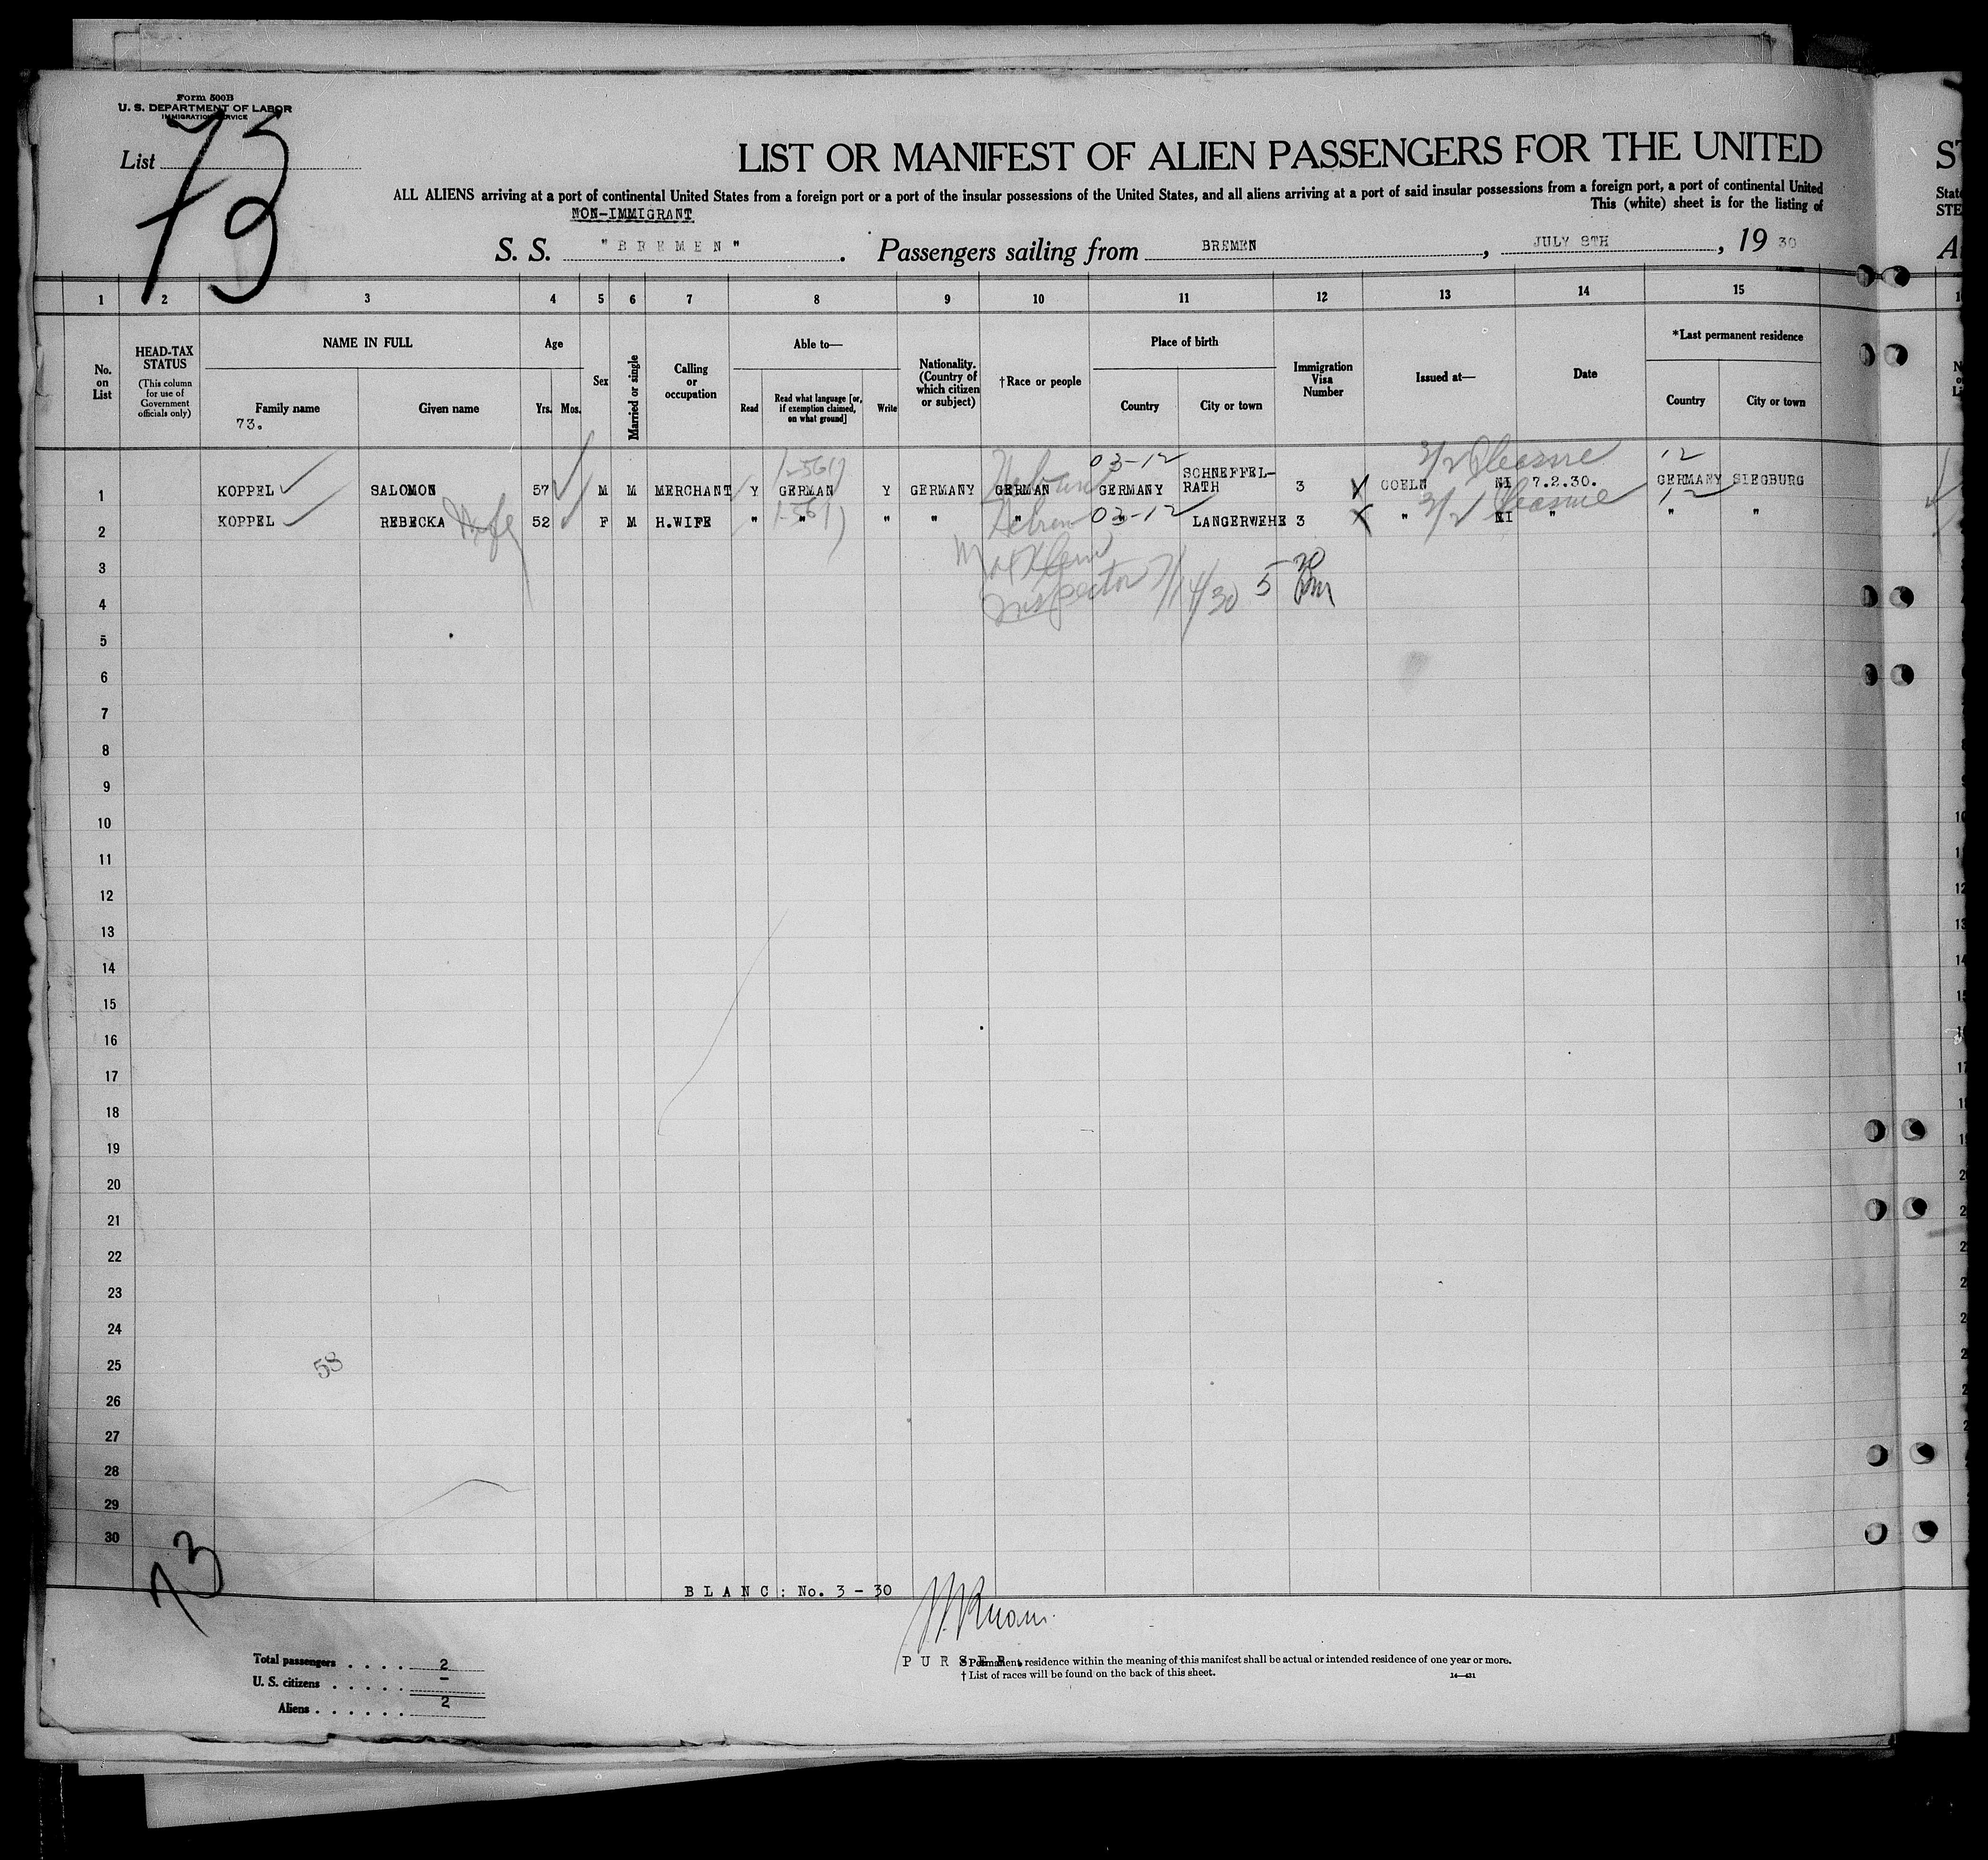 Form 500B
U. S. DEPARTMENT OF LABOR
IMMIGRATION SERVICE
List 73
19
LIST OR MANIFEST OF ALIEN PASSENGERS FOR THE UNITED
ALL ALIENS arriving at a port of continental United States from a foreign port or a port of the insular possessions of the United States, and all aliens arriving at a port of said insular possessions from a foreign port, a port of continental United
NON-IMMIGRANT This (white) sheet is for the listing of
S. S. "BREMEN". Passengers sailing from BREMEN, JULY 8TH, 19 30
1 2 3 4 5 6 7 8 9 10 11 12 13 14 15
No. on List
HEAD-TAX STATUS
(This column for use of Government officials only)
NAME IN FULL
Family name
Given name
73.
Age
Yrs. Mos.
Sex
Married or single
Calling or occupation
Able to—
Read
Read what language [or, if exemption claimed, on what ground]
Write
Nationality. (Country of which citizen or subject)
†Race or people
Place of birth
Country
City or town
Immigration Visa Number
Issued at—
Date
*Last permanent residence
Country
City or town
03-12 Pleasure 12
1 KOPPEL SALOMON 57 M M MERCHANT Y GERMAN Y GERMANY GERMAN Hebrew GERMANY SCHNEFFEL-RATH 3 COELN NI 7.2.30. GERMANY SIEGBURG
03-12 Pleasure 12
2 KOPPEL REBECKA Wife 52 F M H.WIFE " " " " " Hebrew " LANGERWEHE 3 " NI " " "
3 Max Klein
4 Inspector 7/14/30 5 20 Pm
5
6
7
8
9
10
11
12
13
14
15
16
17
18
19
20
21
22
23
24
25 58
26
27
28
29
30
73
BLANC: No. 3 - 30
PURSER.
Total passengers . . . . 2
U. S. citizens . . . . . –
Aliens . . . . . . 2
* Permanent residence within the meaning of this manifest shall be actual or intended residence of one year or more.
† List of races will be found on the back of this sheet.
14—431